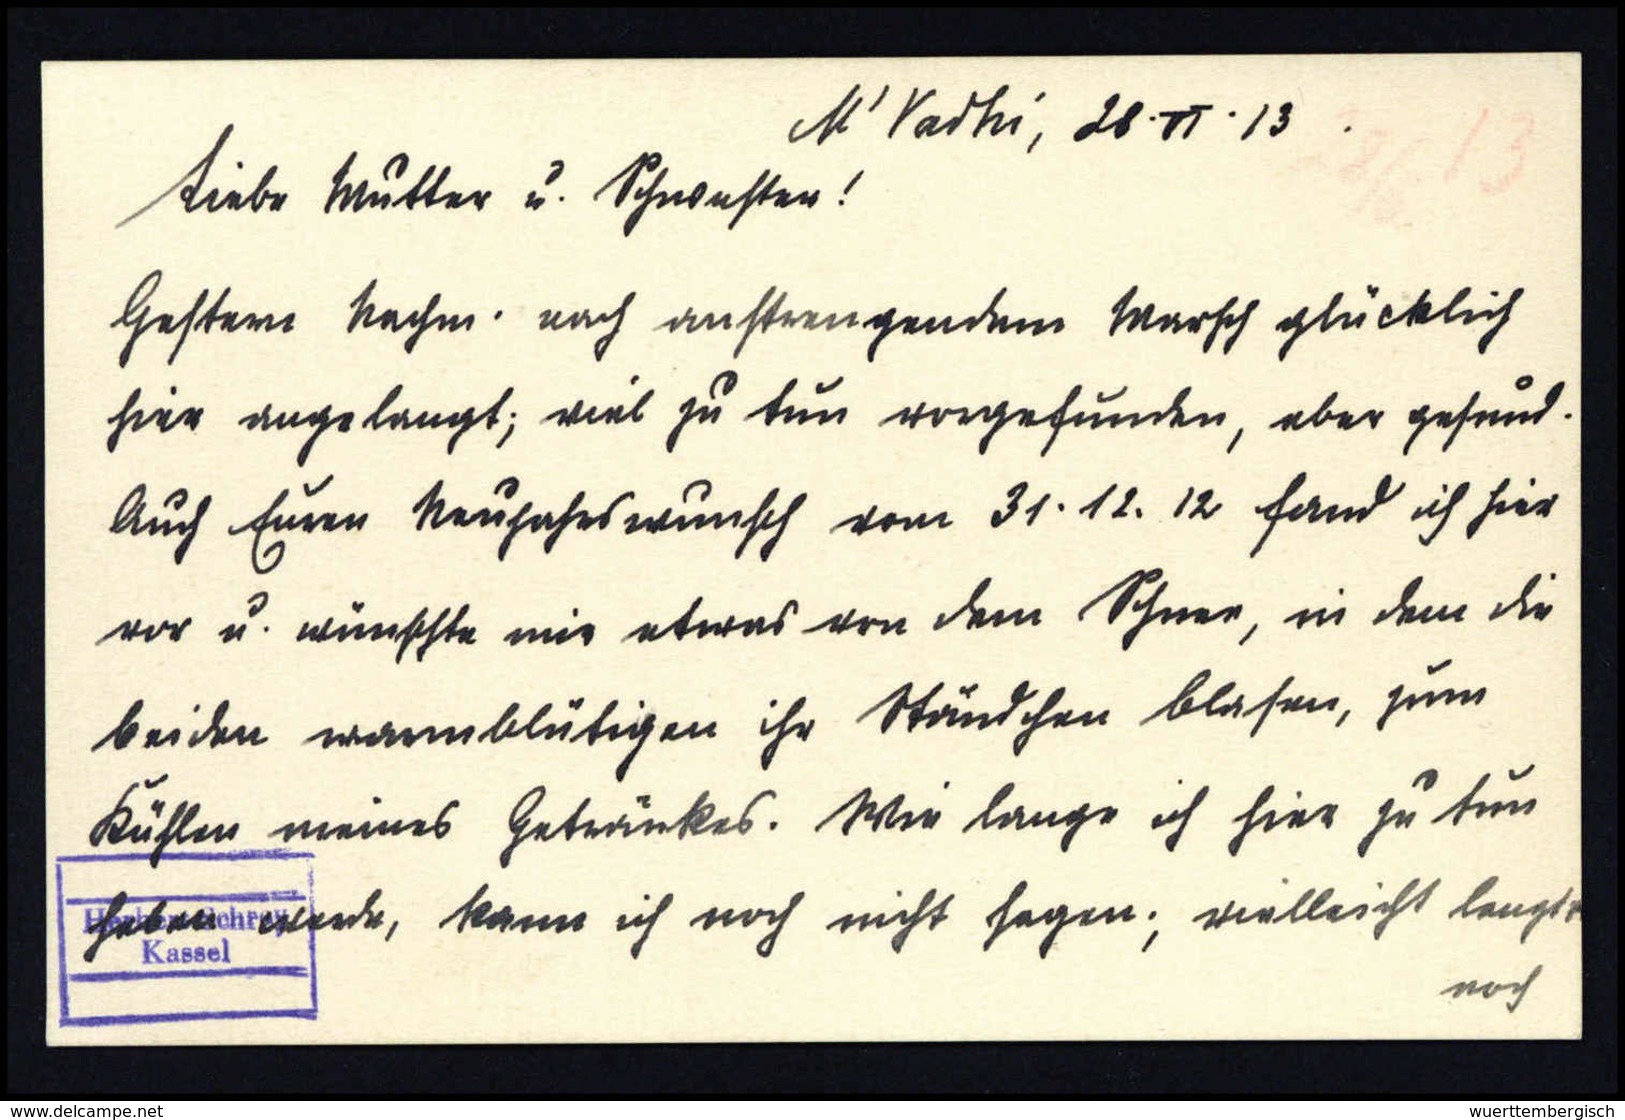 M'Vadhi, 28.II.13.
Liebe Mutter u. Schwester!
Gestern Nachm. nach anstrengendem Marsch glücklich
hier angelangt; viel zu tun vorgefunden, aber gesund.
Auch Euren Neujahrswunsch vom 31.12.12 fand ich hier
vor u. wünschte mir etwas von dem Schnee, in dem die
beiden warmblütigen ihr Ständchen blasen, zum
Kühlen meines Getränkes. Wie lange ich hier zu tun
haben werde, kann ich noch nicht sagen; vielleicht langt's
noch
13
Kassel
delcampe.net
wuerttembergisch